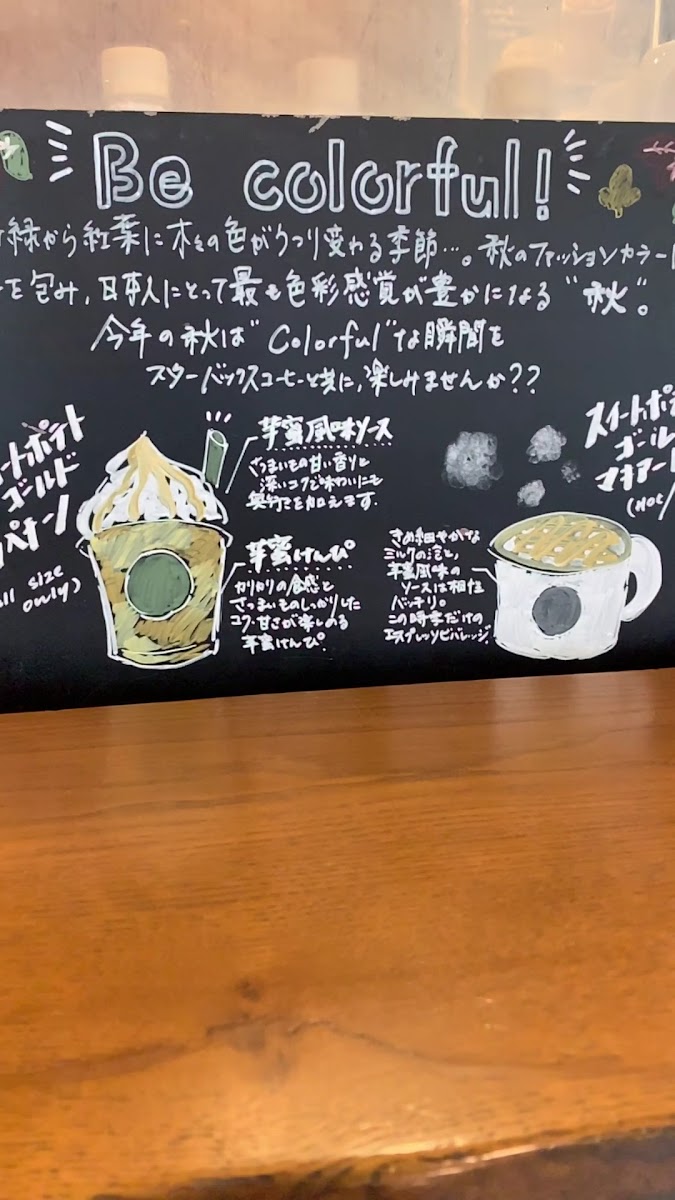 Be colorful!
緑から紅葉に木々の色がうつり変わる季節…。秋のファッションカラー
を包み、日本人にとって最も色彩感覚が豊かになる"秋"。
今年の秋は"Colorful"な瞬間を
スターバックスコーヒーと共に、楽しみませんか??
ートポテト
ゴールド
ペチーノ
size
only)
芋蜜風味ソース
さつまいもの甘い香りと
深いコクで味わいにも
奥行きを加えます。
芋蜜けんぴ
カリカリの食感と
さつまいものしっかりした
コク、甘さが楽しめる
芋蜜けんぴ。
きめ細やかな
ミルクの泡と、
芋蜜風味の
ソースは相性
バッチリ。
この時季だけの、
エスプレッソビバレッジ。
スイートポ
ゴール
マキアー
(HOT